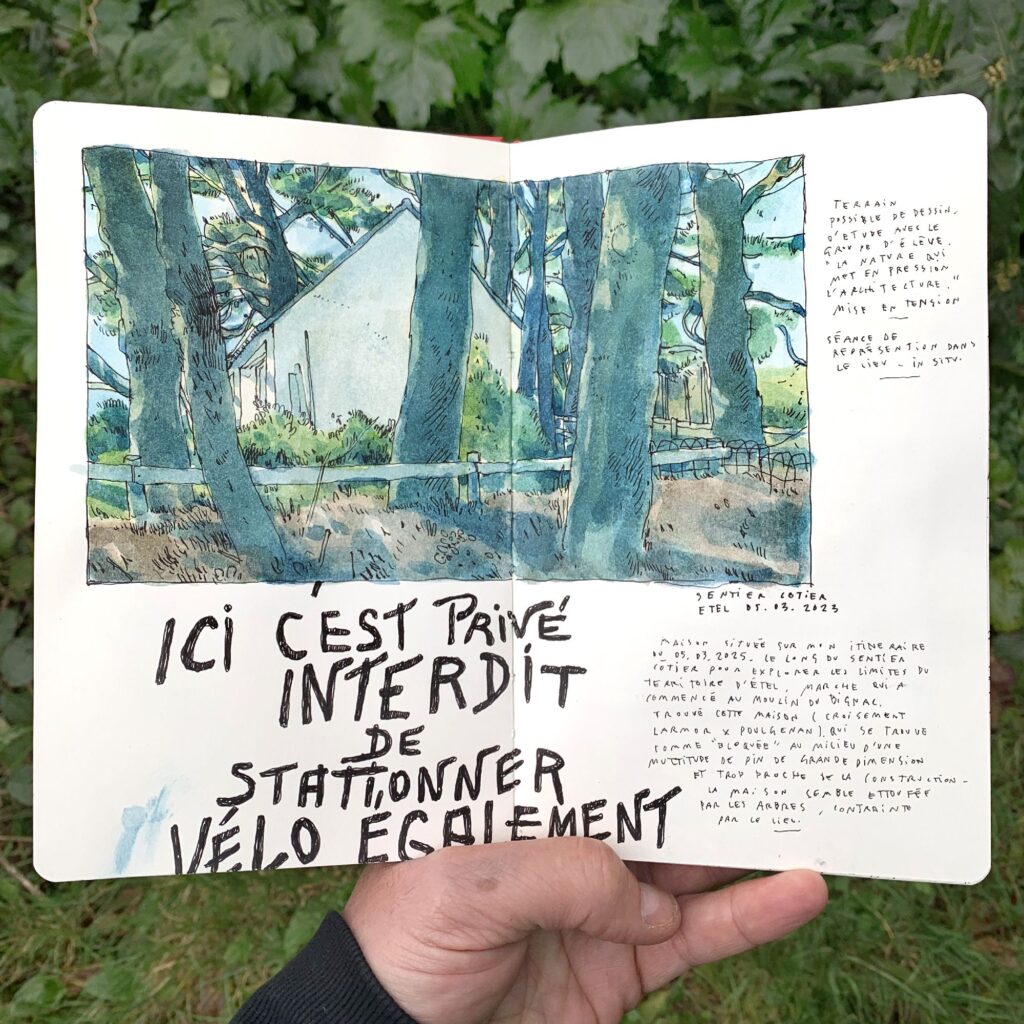 TERRAIN
POSSIBLE DE DESSIN,
D'ETUDE AVEC LE
GROUPE D'ÉLÈVE.
"LA NATURE QUI
MET EN PRESSION
L'ARCHITECTURE."
MISE EN TENSION
SÉANCE DE
REPRÉSENTION DANS
LE LIEU - IN SITU.
SENTIER COTIER
ETEL 05.03.2023
ICI C'EST PRIVÉ
INTERDIT
DE
STATIONNER
VÉLO ÉGALEMENT
MAISON SITUÉE SUR MON ITINERAIRE
DU 05.03.2025. LE LONG DU SENTIER
COTIER POUR EXPLORER LES LIMITES DU
TERRITOIRE D'ÉTEL, MARCHE QUI A
COMMENCÉ AU MOULIN DU BIGNAC.
TROUVÉ CETTE MAISON (CROISEMENT
LARMOR X POULGENAN). QUI SE TROUVE
COMME "BLOQUÉE" AU MILIEU D'UNE
MULTITUDE DE PIN DE GRANDE DIMENSION
ET TROP PROCHE DE LA CONSTRUCTION -
LA MAISON SEMBLE ETOUFÉE
PAR LES ARBRES, CONTRAINTE
PAR LE LIEU.